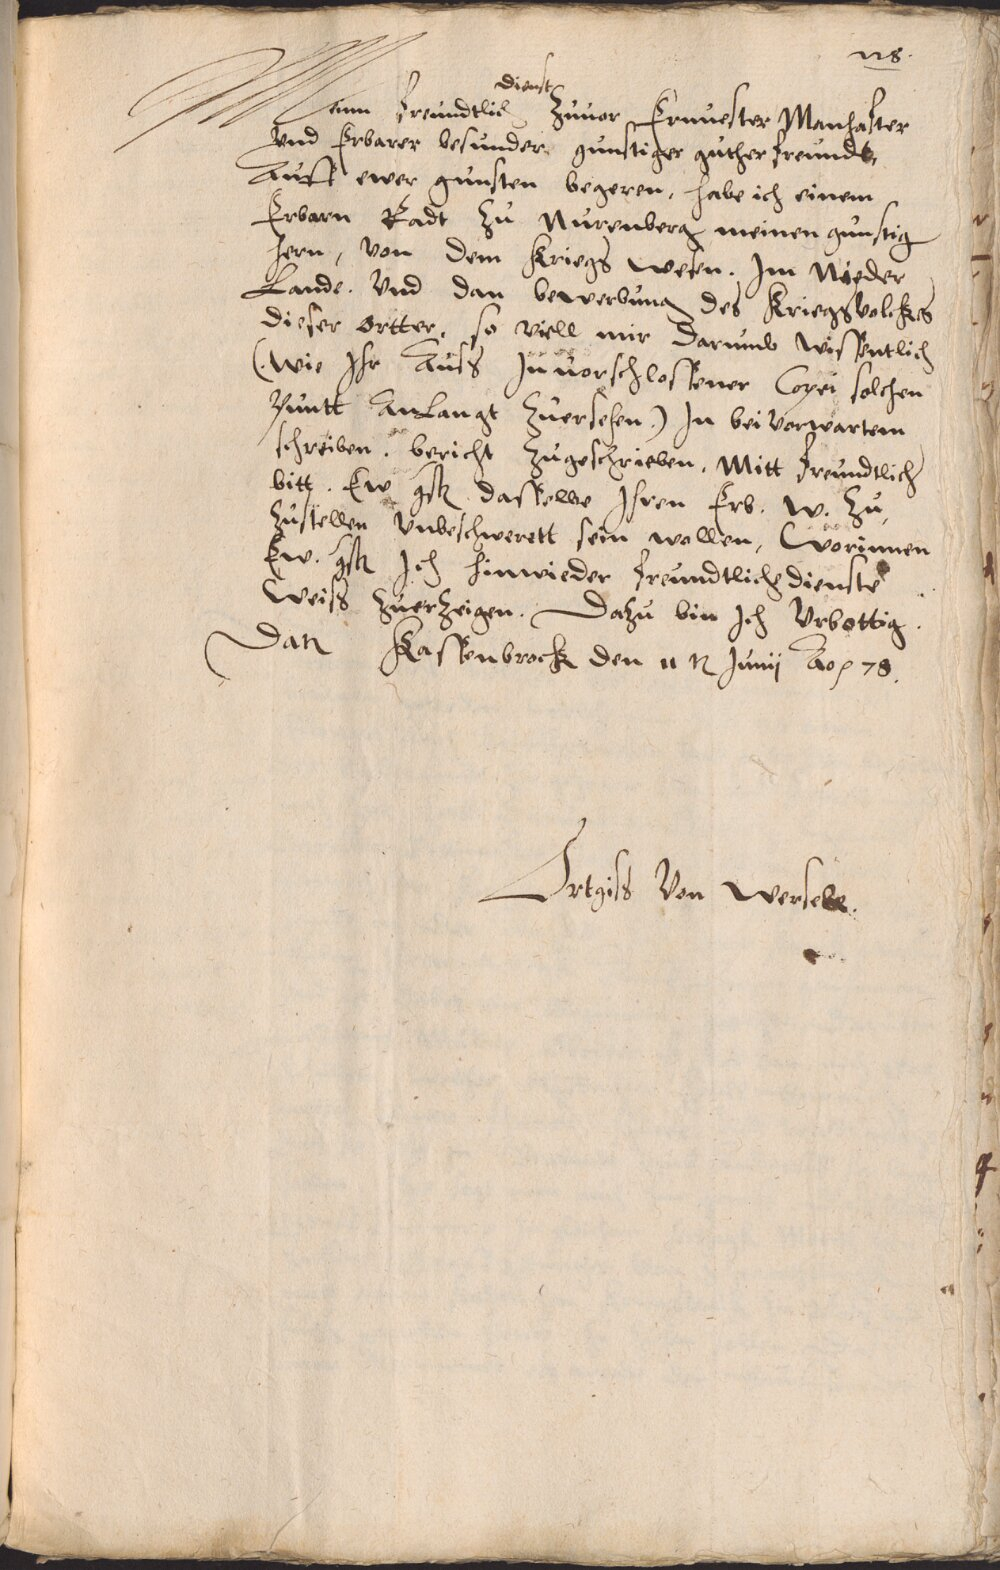 118.
dienst
Mein freundtlich zuuor Ernuester Manhafter
Vnd Erbarer besunder gunstiger guther freundt,
Auff ewer gunsten begeren, habe ich einem
Erbarn Radt zu Nurenberg meinen gunstig
hern, von dem Kriegs wesen. Im Nieder
Lande. Vnd dan bewerbung des Kriegsvolckes
dieser ortter, so viell mir darumb wissentlich
(wie Ihr Auss Inuorschlossener Copei solchen
Puntt Anlangt zuersehen.) In bei vorwartem
schreiben. bericht zugeschrieben. Mitt freundtlich
bitt. Ew. dasselbe Ihren Erb. W. zu
zustellen Vnbeschwerett sein wollen, Worinnen
Ew. Ich hinwieder freundtliche dienste
Weiss zuerzeigen. Dazu bin Ich Vrbottig.
Dat Kassenbrock den 11 t Junij Ao 78.
Ortgiss Von Wersebe.